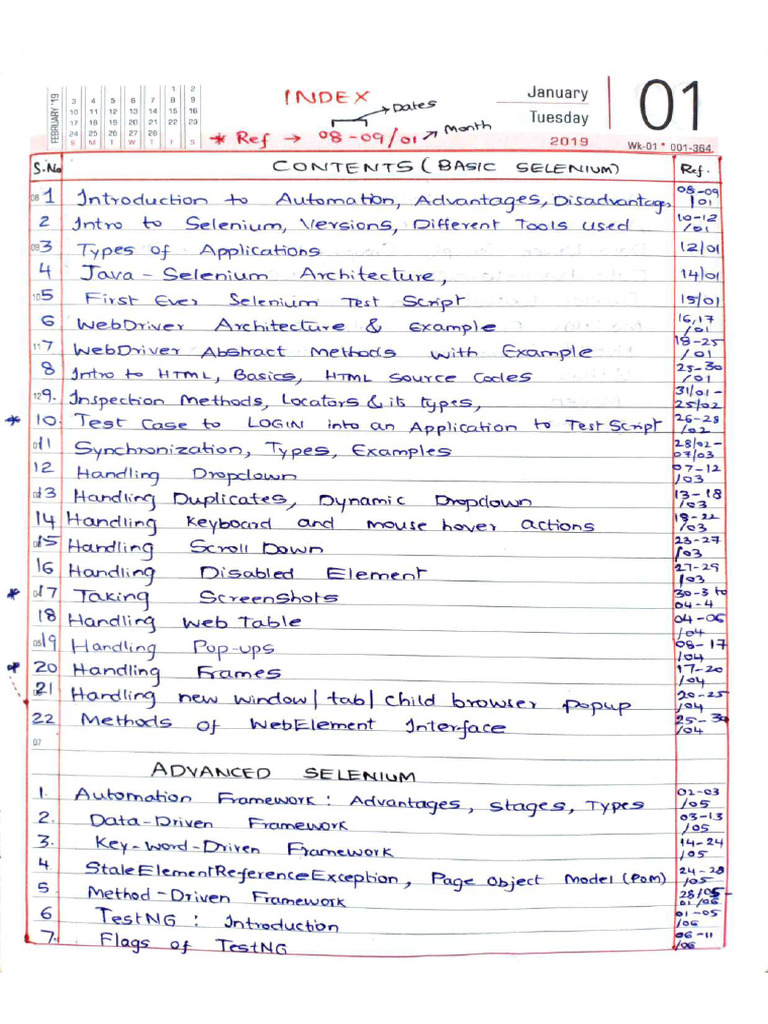 FEBRUARY '19
1 2
3 4 5 6 7 8 9
10 11 12 13 14 15 16
17 18 19 20 21 22 23
24 25 26 27 28
S M T W T F S
INDEX
January
Tuesday
2019
01
Wk-01 * 001-364
Dates
* Ref → 08-09/01 → Month
S.No CONTENTS (BASIC SELENIUM) Ref.
08 1 Introduction to Automation, Advantages, Disadvantages 08-09/01
2 Intro to Selenium, Versions, Different Tools used 10-12/01
09 3 Types of Applications 12/01
4 Java - Selenium Architecture, 14/01
10 5 First Ever Selenium Test Script 15/01
6 WebDriver Architecture & Example 16,17/01
11 7 WebDriver Abstract Methods with Example 18-25/01
8 Intro to HTML, Basics, HTML Source Codes 25-30/01
12 9. Inspection Methods, Locators & its types, 31/01-25/02
* 10. Test Case to LOGIN into an Application to Test Script 26-28/02
11 Synchronization, Types, Examples 28/02-07/03
12 Handling Dropdown 07-12/03
13 Handling Duplicates, Dynamic Dropdown 13-18/03
14 Handling Keyboard and mouse hover actions 18-22/03
15 Handling Scroll Down 23-27/03
16 Handling Disabled Element 27-29/03
* 17 Taking Screenshots 30-3 to 04-4
18 Handling Web Table 04-06/04
05 19 Handling Pop-ups 08-17/04
* 20 Handling Frames 17-20/04
21 Handling new window/tab/child browser popup 20-25/04
22 Methods of WebElement Interface 25-30/04
07
ADVANCED SELENIUM
1. Automation Framework: Advantages, stages, Types 02-03/05
2. Data-Driven Framework 03-13/05
3. Key-word-Driven Framework 14-24/05
4 StaleElementReferenceException, Page Object Model (POM) 24-28/05
5. Method-Driven Framework 28/05-01/06
6 TestNG: Introduction 01-05/06
7. Flags of TestNG 06-11/06